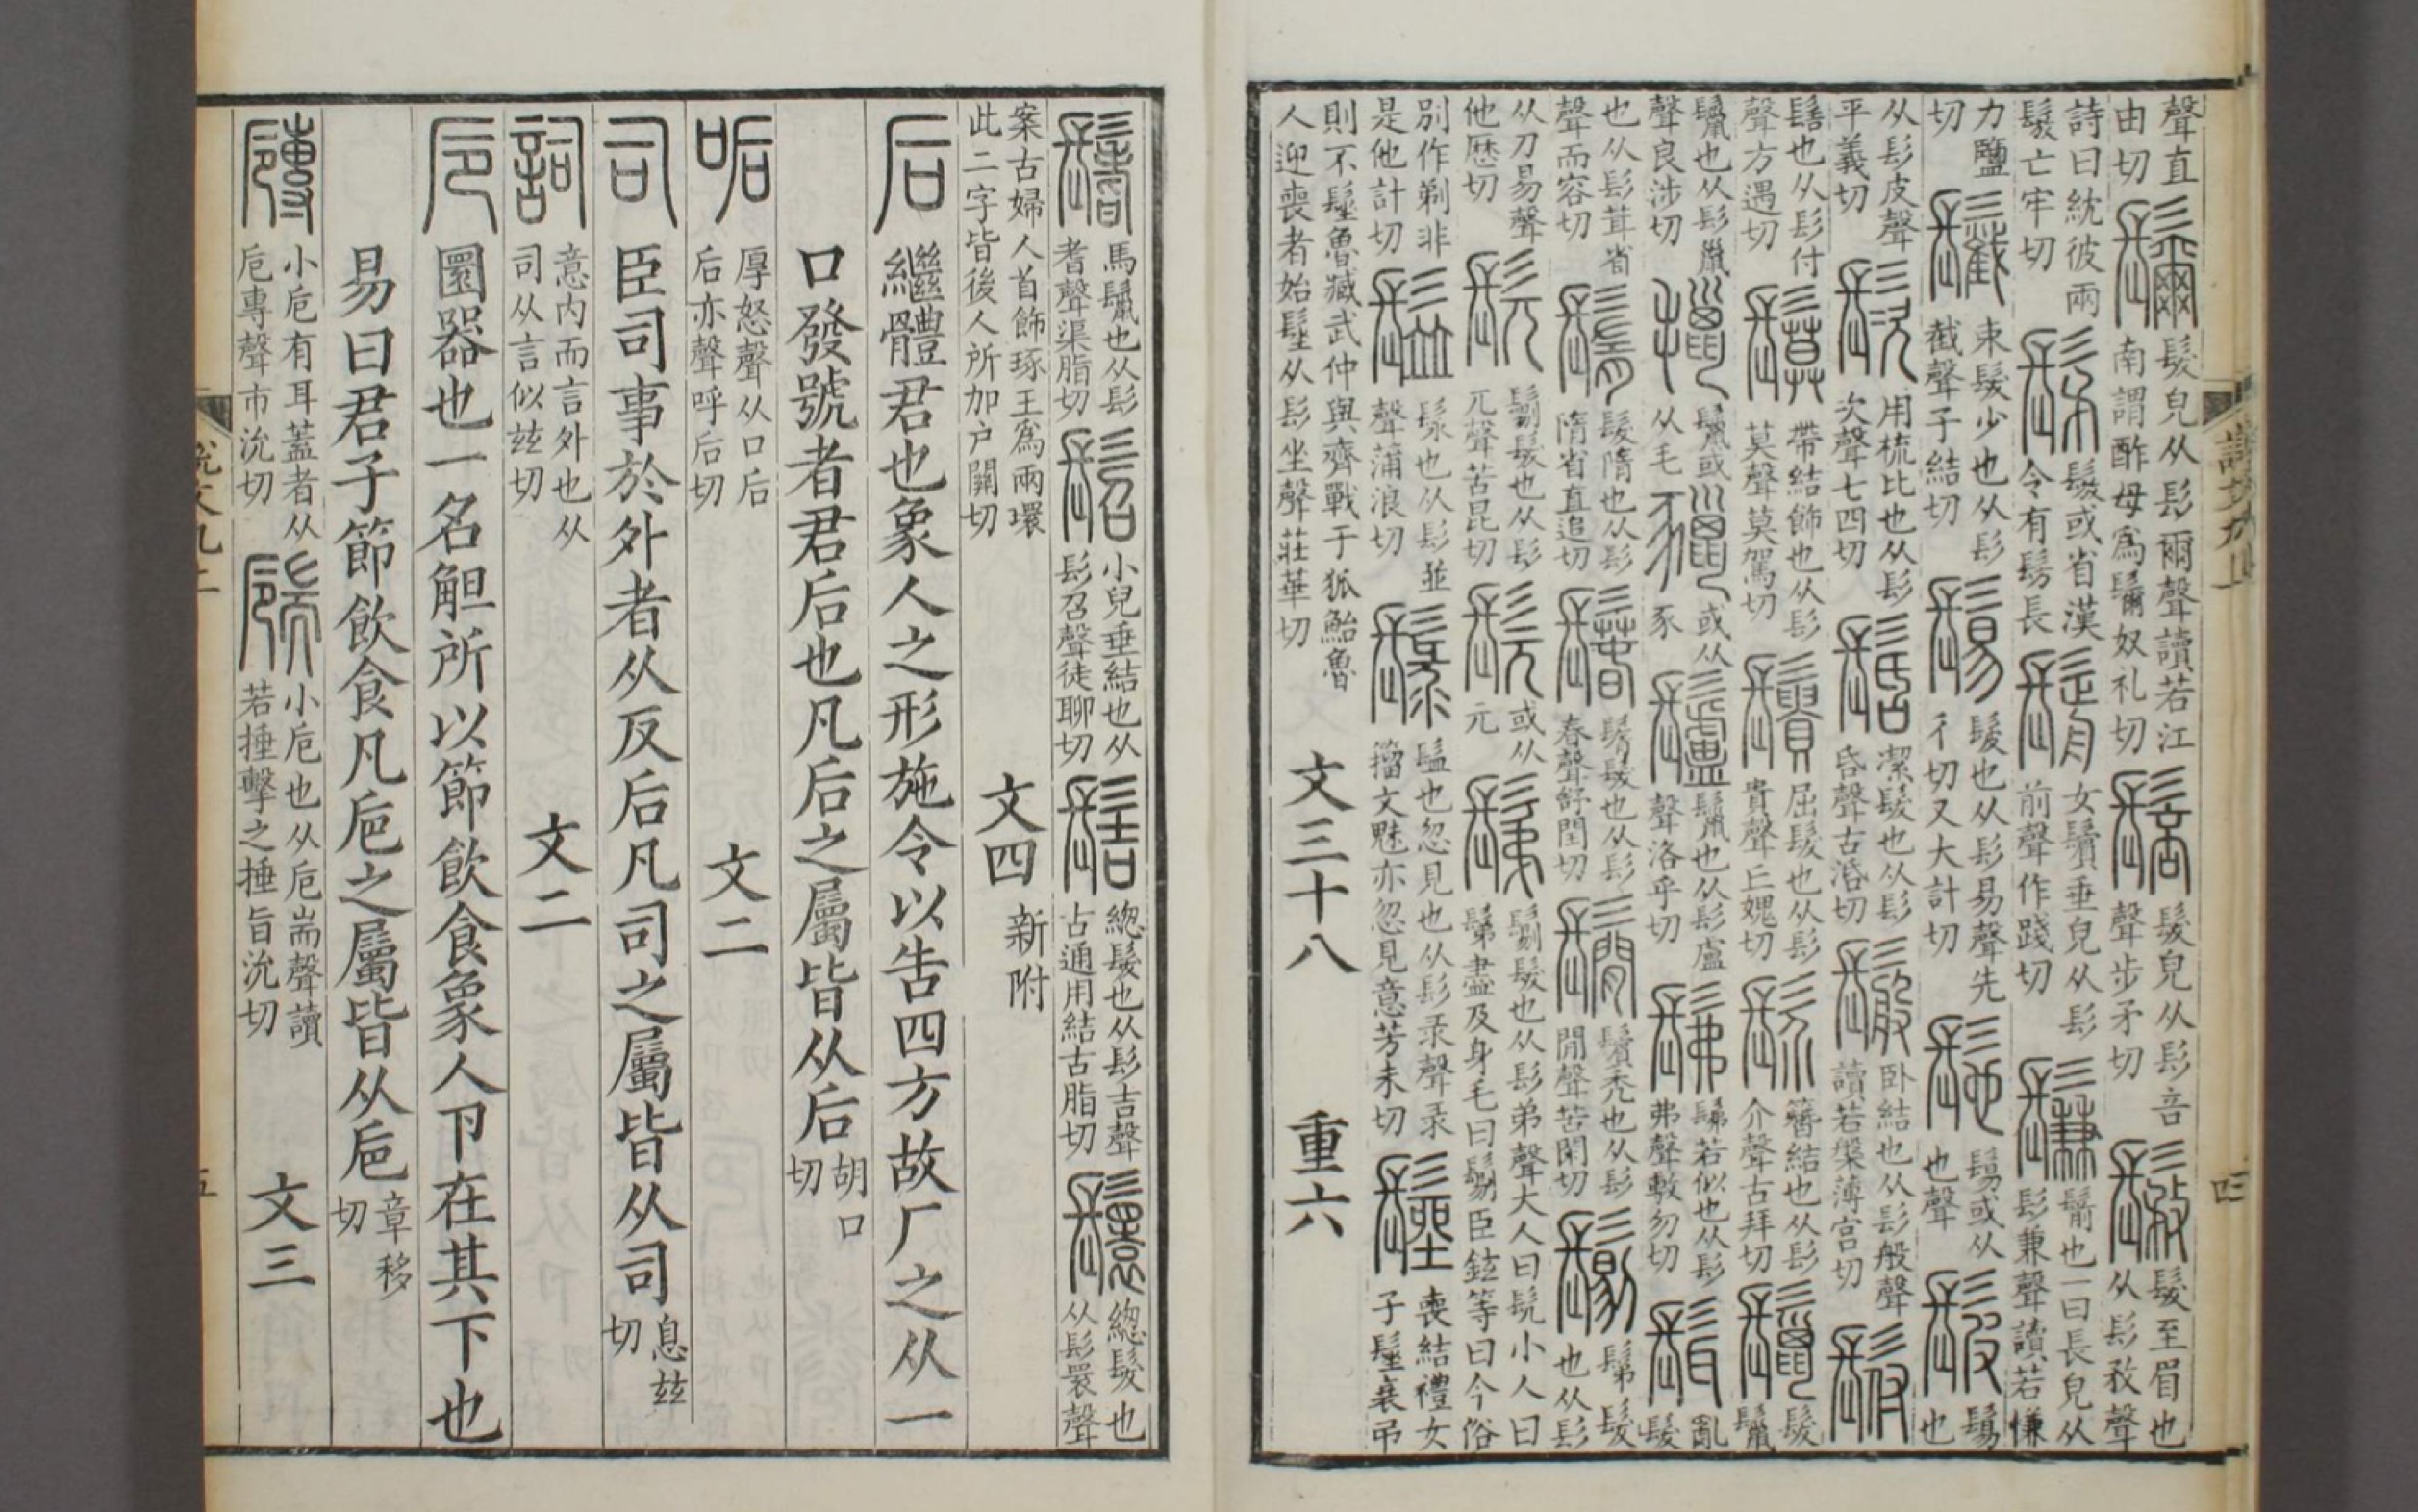 聲直由切 𩯨 髮皃从髟爾聲讀若江南謂酢母爲𩯨奴礼切 䯽 髮皃从髟咅聲步矛切 𩭾 髮至眉也从髟敄聲
詩曰紞彼兩𩭾亡牢切 髳 𩭾或省漢令有髳長 鬋 女鬢垂皃从髟前聲作踐切 鬑 鬋也一曰長皃从髟兼聲讀若慊
力鹽切 束髮少也从髟截聲子結切 鬄 髲也从髟易聲先彳切又大計切 髢 鬄或从也聲 髲 鬄也
从髟皮聲平義切 用梳比也从髟次聲七四切 髺 潔髮也从髟昏聲古活切 臥結也从髟般聲讀若槃薄官切
髻也从髟付聲方遇切 帶結飾也从髟莫聲莫駕切 屈髮也从髟貴聲丘媿切 簪結也从髟介聲古拜切 鬣 髮
鬣也从髟巤聲良涉切 鬣或从毛 或从豕 鬣也从髟盧聲洛乎切 髴 髴若似也从髟弗聲敷勿切 髶 亂髮
也从髟茸省聲而容切 鬌 髮隋也从髟隋省直追切 鬊 鬢髮也从髟春聲舒閏切 鬜 鬢秃也从髟閒聲苦閑切 鬀髮也从髟
从刀易聲他歷切 髡 髮也从髟兀聲苦昆切 髨 或从元 鬀 髮也从髟弟聲大人曰髡小人曰鬀盡及身毛曰臣鉉等曰今俗
別作剃非是他計切 也从髟並聲蒲浪切 也忽見也从髟录聲录籀文魅亦忽見意芳未切 髽 喪結禮女子髽衰弔
則不髽魯臧武仲與齊戰于狐鮐魯人迎喪者始髽从髟坐聲莊華切 文三十八 重六
鬐 馬鬣也从髟耆聲渠脂切 髫 小兒垂結也从髟召聲徒聊切 髻 總髮也从髟吉聲古通用結古脂切 鬟 總髮也从髟瞏聲
案古婦人首飾琢玉爲兩環此二字皆後人所加戶關切 文四 新附
后 繼體君也象人之形施令以告四方故厂之从一
口發號者君后也凡后之屬皆从后 胡口切
㖃 厚怒聲从口后后亦聲呼后切 文二
司 臣司事於外者从反后凡司之屬皆从司 息兹切
詞 意內而言外也从司从言似兹切 文二
卮 圜器也一名觛所以節飲食象人卪在其下也
易曰君子節飲食凡卮之屬皆从卮 章移切
小卮有耳蓋者从卮專聲市沇切 小卮也从卮耑聲讀若捶擊之捶旨沇切 文三